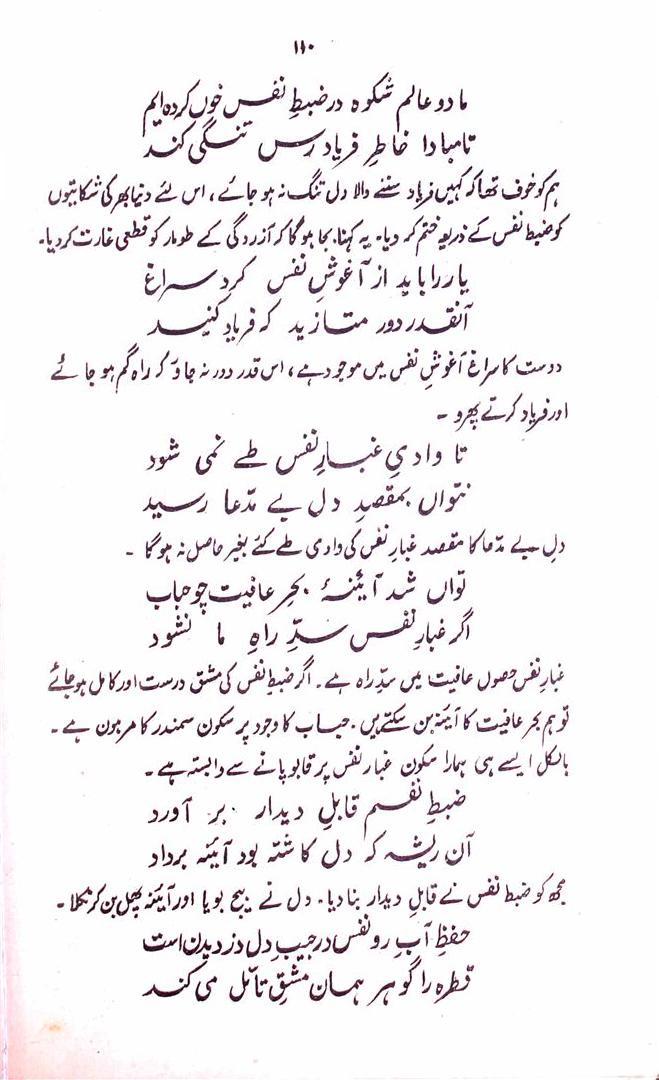 ۱۱۰
ما دو عالم شکوہ در ضبطِ نفس خوں کردہ ایم
تا مبادا خاطرِ فریاد رس تنگی کند
ہم کو خوف تھا کہ کہیں فریاد سننے والا دل تنگ نہ ہو جائے، اس لئے دنیا بھر کی شکایتوں
کو ضبط نفس کے ذریعہ ختم کر دیا۔ یہ کہنا بجا ہوگا کہ آزردگی کے طومار کو قطعی غارت کر دیا۔
یار را باید از آغوشِ نفس کرد سراغ
آنقدر دور متازید کہ فریاد کنید
دوست کا سراغ آغوشِ نفس میں موجود ہے، اس قدر دور نہ جاؤ کہ راہ گم ہو جائے
اور فریاد کرتے پھرو ۔
تا وادیِ غبارِ نفس طے نمی شود
نتواں بمقصدِ دل بے مدّعا رسید
دلِ بے مدّعا کا مقصد غبارِ نفس کی وادی طے کئے بغیر حاصل نہ ہوگا ۔
تواں شد آئینۂ بحرِ عافیت چو حباب
اگر غبارِ نفس سدِّ راہِ ما نشود
غبارِ نفس حصولِ عافیت میں سدِّ راہ ہے۔ اگر ضبطِ نفس کی مشق درست اور کامل ہو جائے
تو ہم بحرِ عافیت کا آئینہ بن سکتے ہیں۔ حباب کا وجود پر سکون سمندر کا مرہون ہے۔
بالکل ایسے ہی ہمارا سکون غبارِ نفس پر قابو پانے سے وابستہ ہے۔
ضبطِ نفسم قابلِ دیدار بر آورد
آن ریشہ کہ دل کاشتہ بود آئینہ برداد
مجھ کو ضبط نفس نے قابلِ دیدار بنا دیا۔ دل نے بیج بویا اور آئینہ پھل بن کر نکلا۔
حفظِ آبِ رو نفس در جیبِ دل دزدیدن است
قطرہ را گوہر ہمان مشقِ تامّل می کند